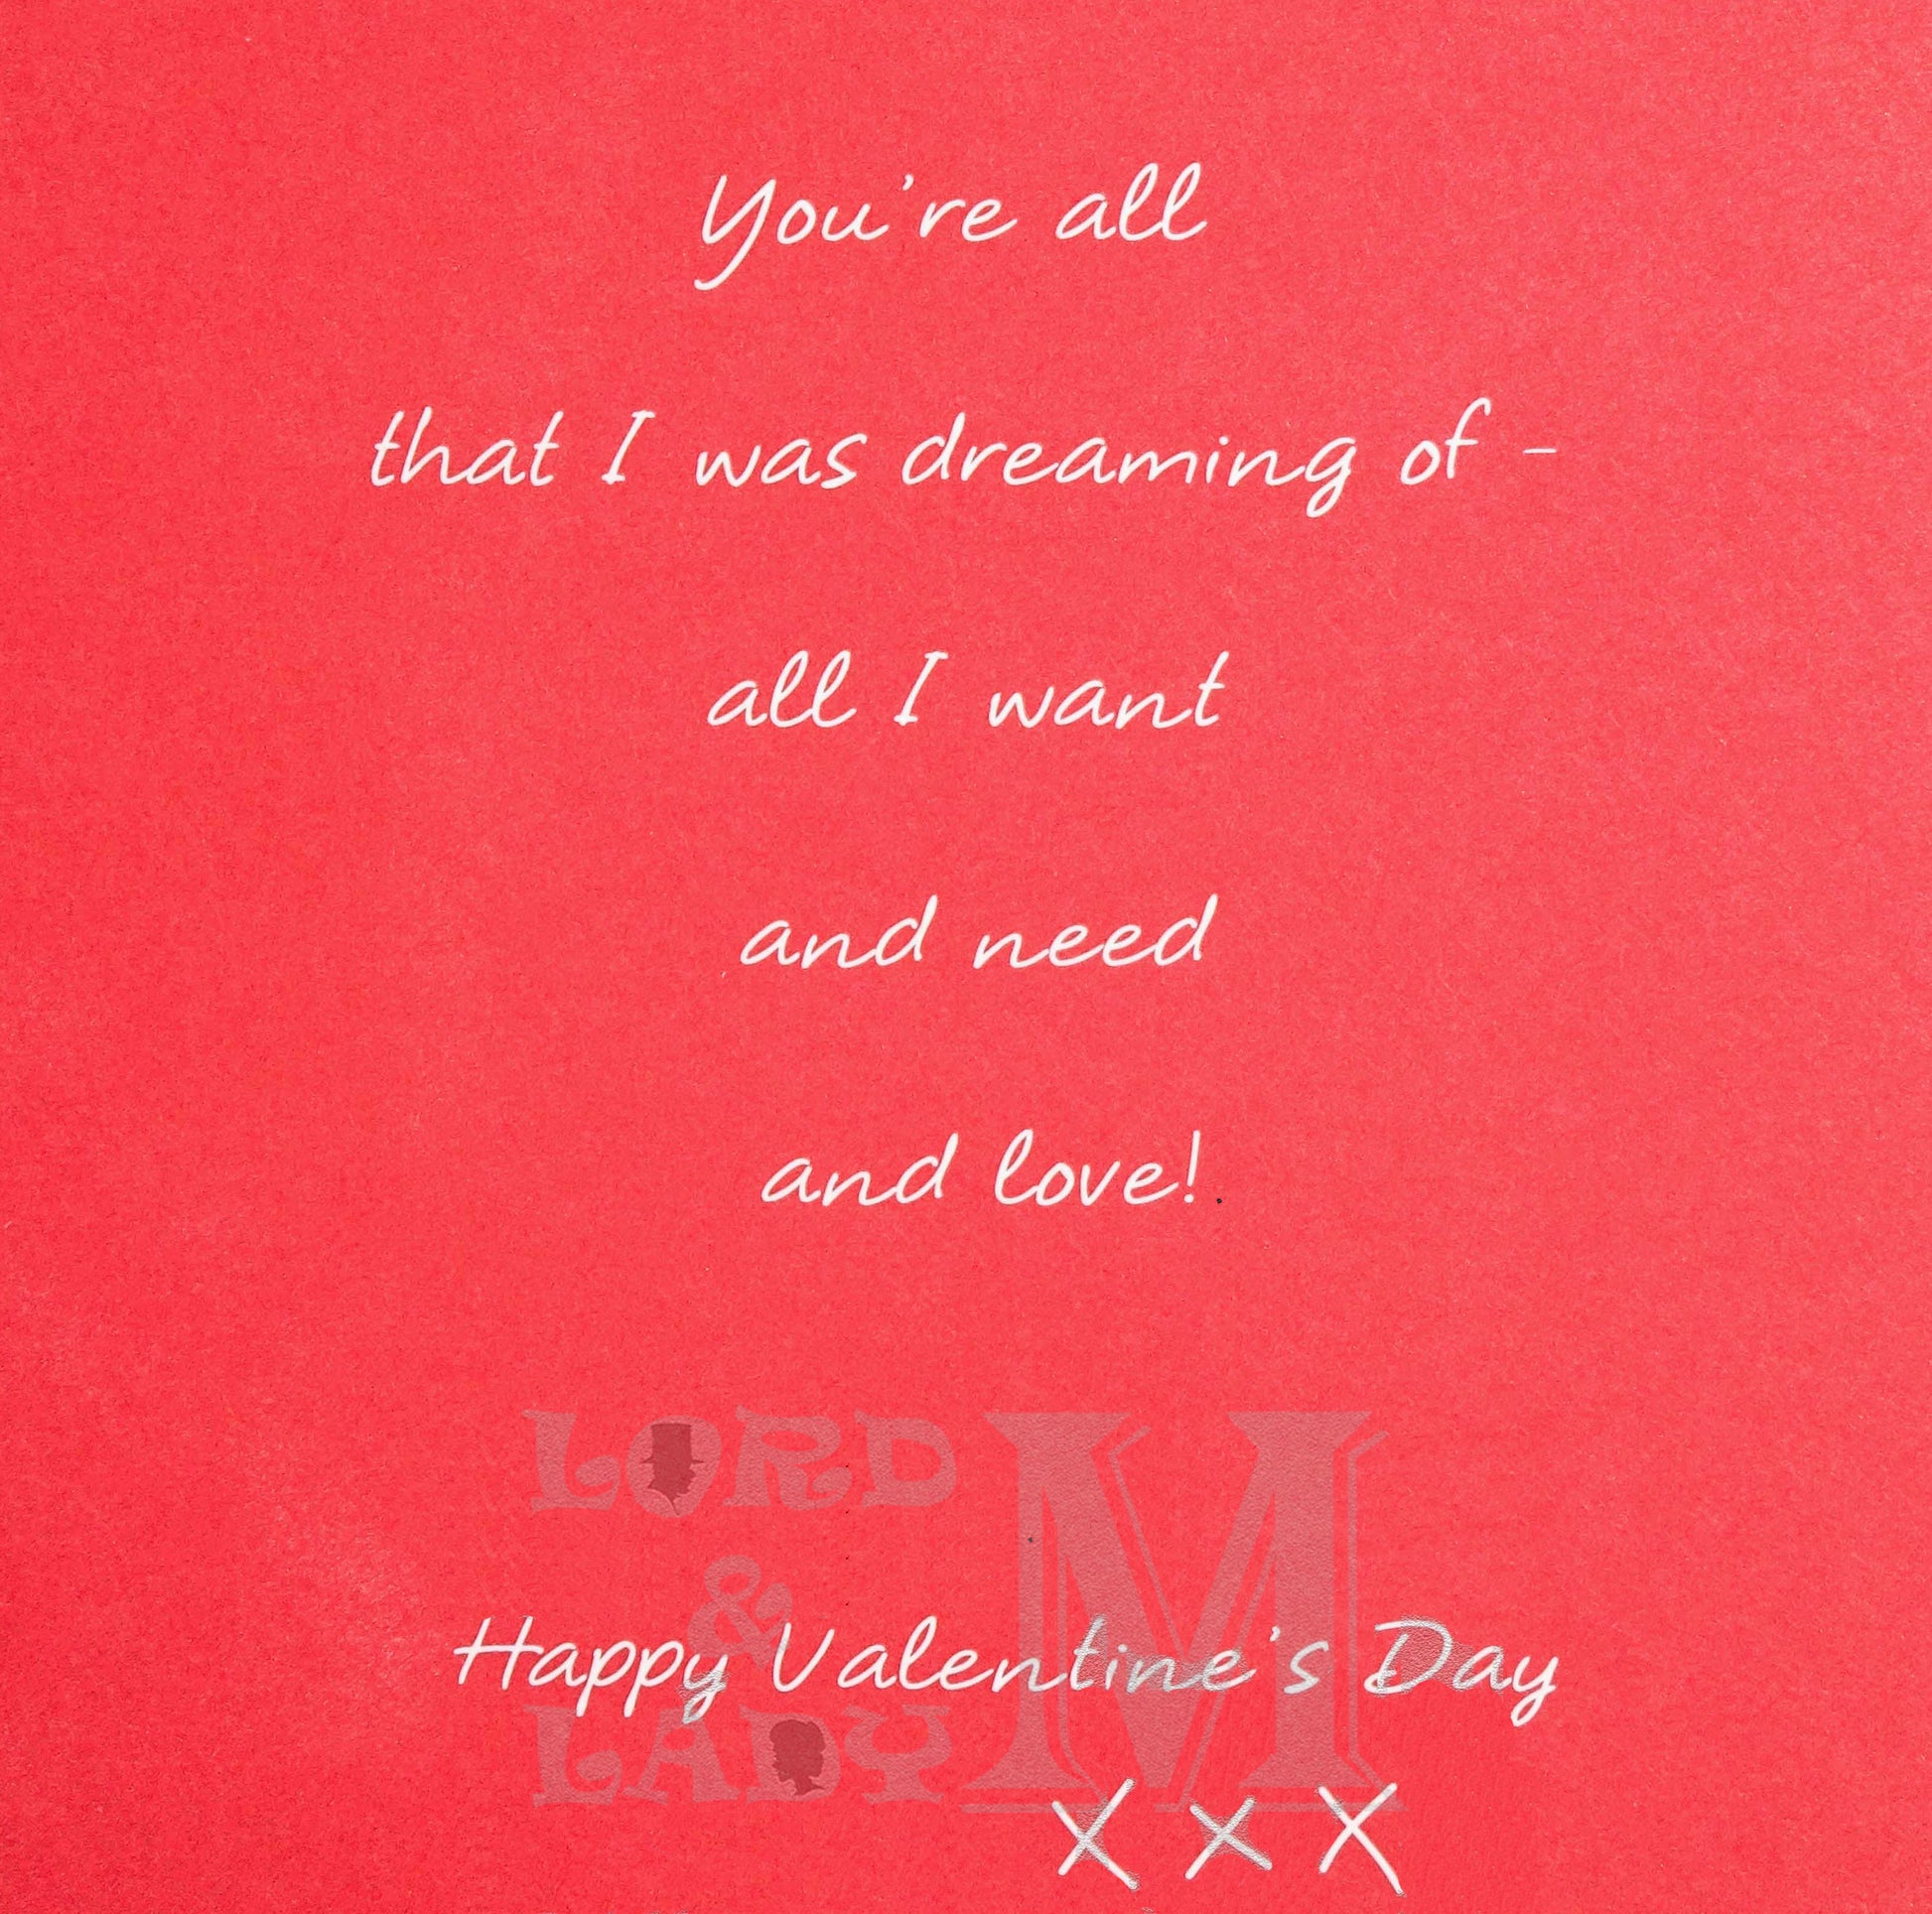 You're all
that I was dreaming of -
all I want
and need
and love!
LORD
&
LADY
M
Happy Valentine's Day
x x x